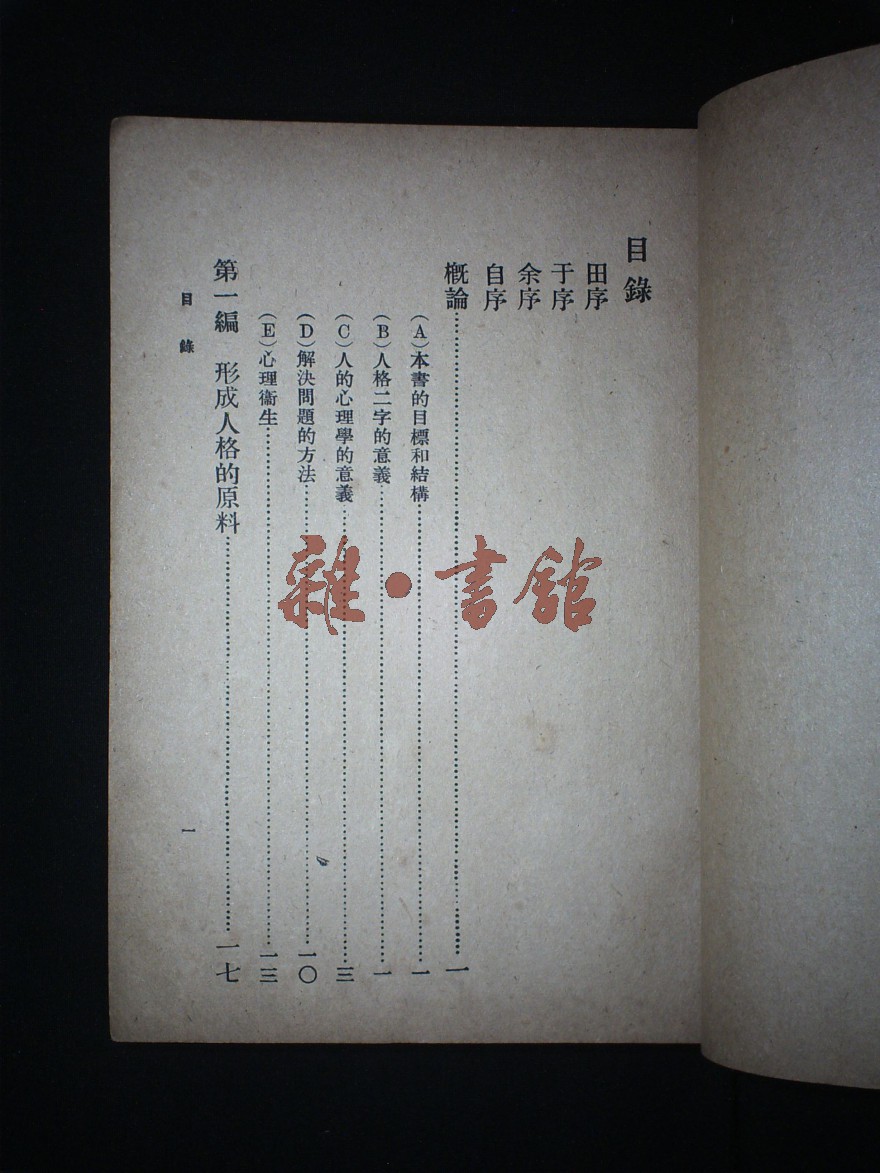 目錄
田序
于序
余序
自序
概論……一
(A)本書的目標和結構……一
(B)人格二字的意義……一
(C)人的心理學的意義……三
(D)解決問題的方法……一〇
(E)心理衞生……一三
第一編 形成人格的原料……一七
目錄
一
雜·書館